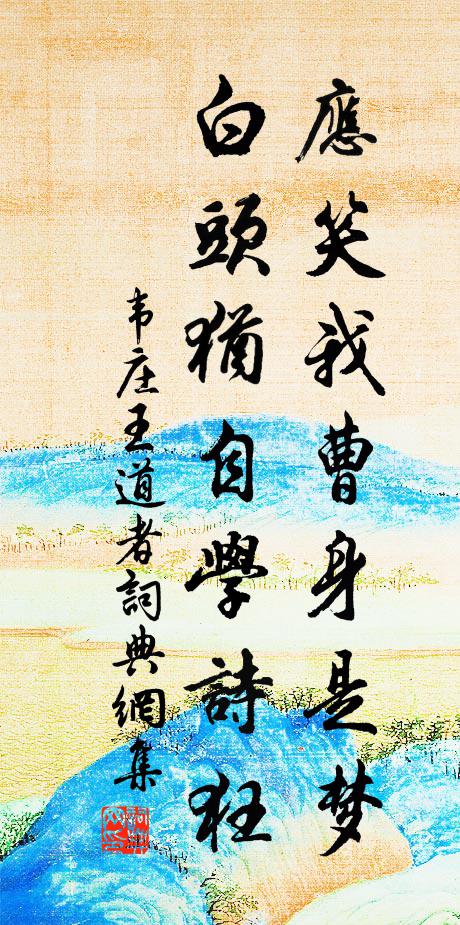 應笑我曹身是梦
白頭猶自學詩狂
韦庄王道者詞典網集